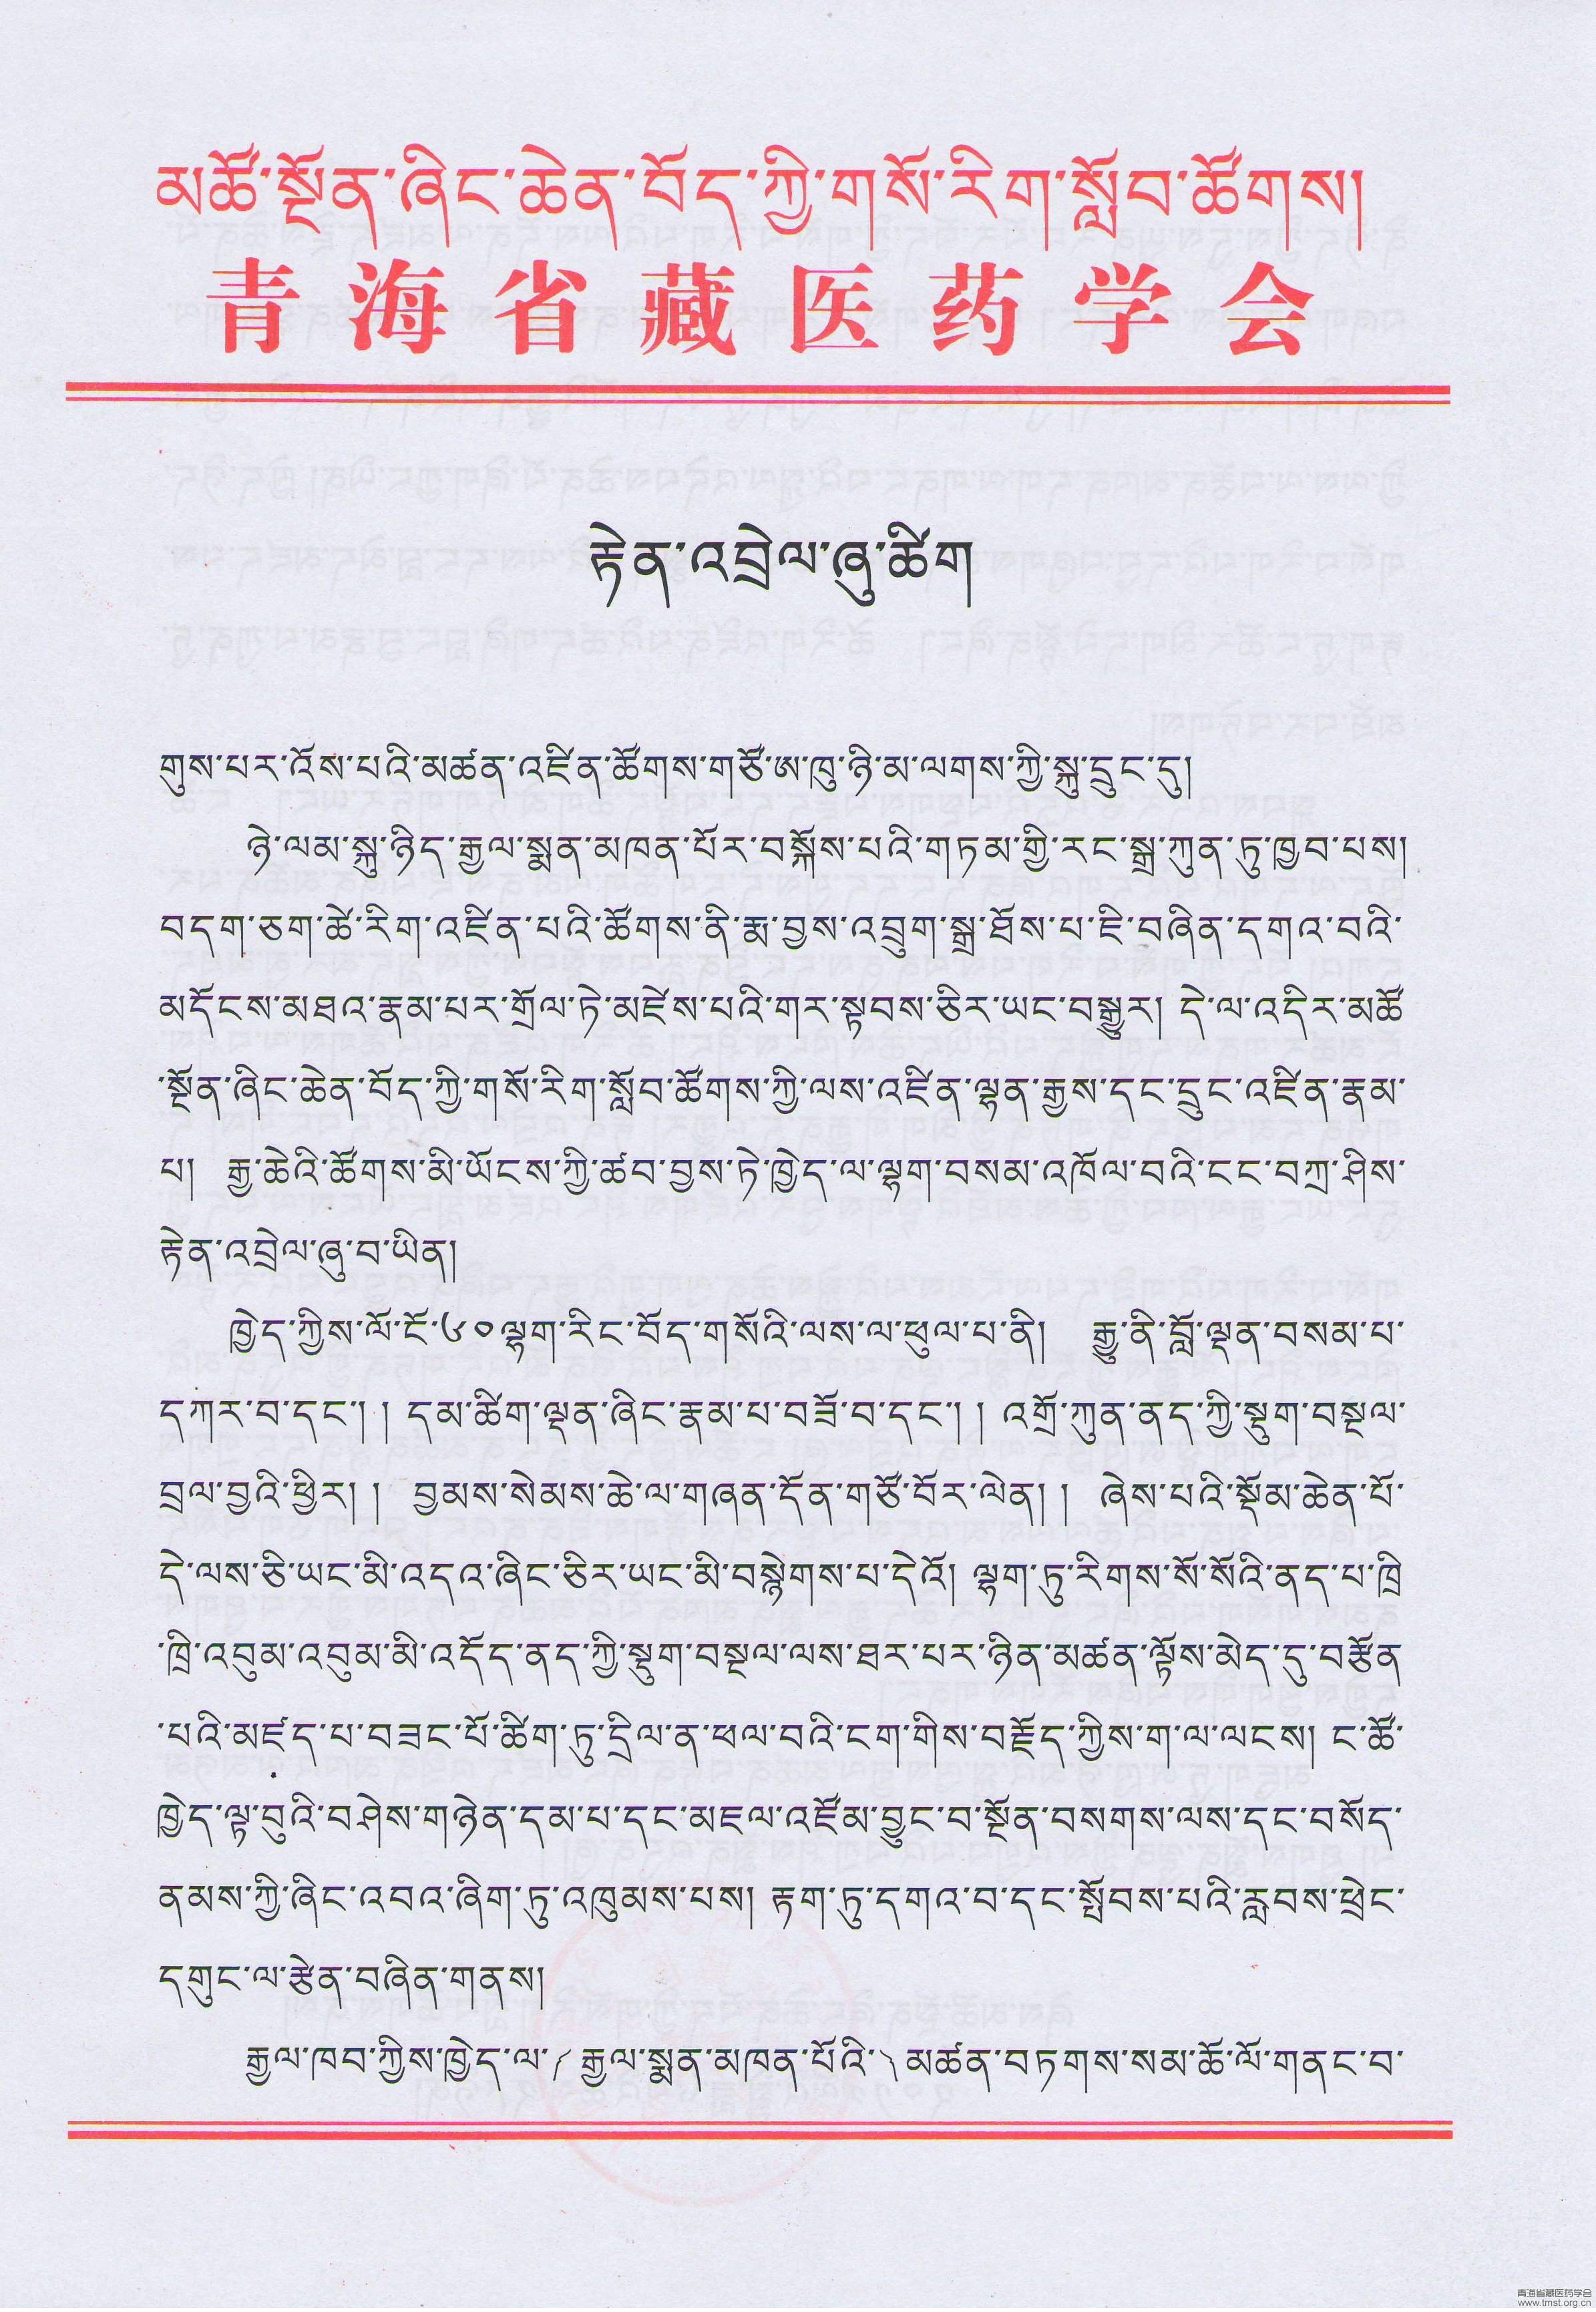 མཚོ་སྔོན་ཞིང་ཆེན་བོད་ཀྱི་གསོ་རིག་སློབ་ཚོགས།
青海省藏医药学会
རྟེན་འབྲེལ་ཞུ་ཚིག
གུས་པར་འོས་པའི་མཚན་འཛིན་ཚོགས་གཙོ་ཨ་ཁུ་ཉི་མ་ལགས་ཀྱི་སྐུ་དྲུང་དུ།
ཉེ་ལམ་སྐུ་ཉིད་རྒྱལ་སྨན་མཁན་པོར་བསྐོས་པའི་གཏམ་གྱི་རང་སྒྲ་ཀུན་ཏུ་ཁྱབ་པས།
བདག་ཅག་ཚེ་རིག་འཛིན་པའི་ཚོགས་ནི་རྨ་བྱས་འབྲུག་སྒྲ་ཐོས་པ་ཇི་བཞིན་དགའ་བའི་
མདོངས་མཐའ་རྣམ་པར་གྲོལ་ཏེ་མཛེས་པའི་གར་སྟབས་ཅིར་ཡང་བསྒྱུར། དེ་ལ་འདིར་མཚོ
་སྔོན་ཞིང་ཆེན་བོད་ཀྱི་གསོ་རིག་སློབ་ཚོགས་ཀྱི་ལས་འཛིན་ལྷན་རྒྱས་དང་དྲུང་འཛིན་རྣམ་
པ། རྒྱ་ཆེའི་ཚོགས་མི་ཡོངས་ཀྱི་ཚབ་བྱས་ཏེ་ཁྱེད་ལ་ལྷག་བསམ་འཁོལ་བའི་ངང་བཀྲ་ཤིས་
རྟེན་འབྲེལ་ཞུ་བ་ཡིན།
ཁྱེད་ཀྱིས་ལོ་ངོ་༦༠ལྷག་རིང་བོད་གསོའི་ལས་ལ་ཕུལ་པ་ནི། རྒྱུ་ནི་བློ་ལྡན་བསམ་པ་
དཀར་བ་དང་། ། དམ་ཚིག་ལྡན་ཞིང་རྣམ་པ་བཟོ་བ་དང་། ། འགྲོ་ཀུན་ནད་ཀྱི་སྡུག་བསྔལ་
བྲལ་བྱའི་ཕྱིར། ། བྱམས་སེམས་ཆེ་ལ་གཞན་དོན་གཙོ་བོར་ལེན། ། ཞེས་པའི་སྡོམ་ཆེན་པོ་
དེ་ལས་ཅི་ཡང་མི་འདའ་ཞིང་ཅིར་ཡང་མི་བསྙེགས་པ་དེའོ། ལྷག་ཏུ་རིགས་སོ་སོའི་ནད་པ་ཁྲི
་ཁྲི་འབུམ་འབུམ་མི་འདོད་ནད་ཀྱི་སྡུག་བསྔལ་ལས་ཐར་པར་ཉིན་མཚན་ལྟོས་མེད་དུ་བརྩོན
་པའི་མཛད་པ་བཟང་པོ་ཚིག་ཏུ་དྲིལ་ན་ཕལ་བའི་ངག་གིས་བརྗོད་ཀྱིས་ག་ལ་ལངས། ང་ཚོ་
ཁྱེད་ལྟ་བུའི་བཤེས་གཉེན་དམ་པ་དང་མཇལ་འཛོམ་བྱུང་བ་སྔོན་བསགས་ལས་དང་བསོད་
ནམས་ཀྱི་ཞིང་འབའ་ཞིག་ཏུ་འཁུམས་པས། རྟག་ཏུ་དགའ་བ་དང་སྤོབས་པའི་རླབས་ཕྲེང་
དགུང་ལ་རྩེན་བཞིན་གནས།
རྒྱལ་ཁབ་ཀྱིས་ཁྱེད་ལ་(རྒྱལ་སྨན་མཁན་པོའི་)མཚན་བཏགས་སམ་ཆོ་ལོ་གནང་བ་
青海省藏医药学会
www.tmst.org.cn